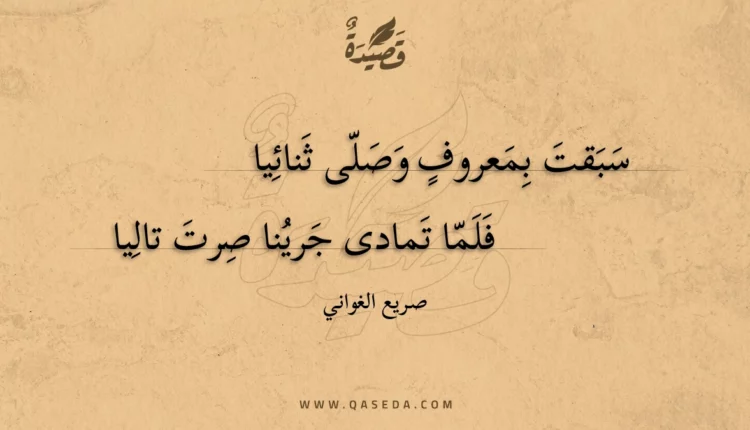 قَصِيْدَةٌ
سَبَقتَ بِمَعروفٍ وَصَلّى ثَنائِيا
فَلَمّا تَمادى جَريُنا صِرتَ تالِيا
صريع الغواني
WWW.QASEDA.COM